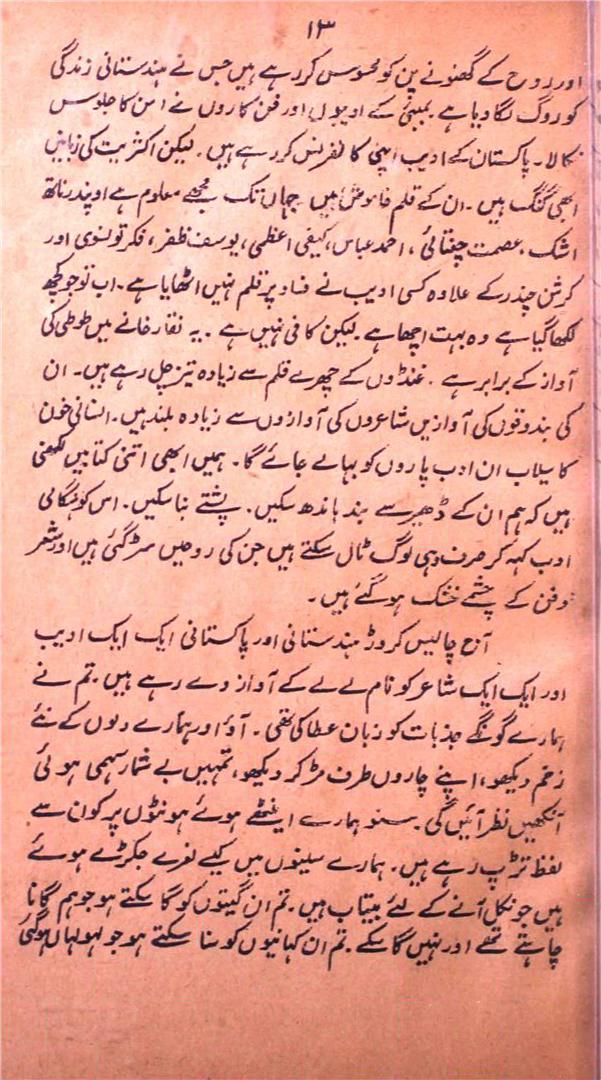 ۱۳
اور روح کے گھنونے پن کو محسوس کر رہے ہیں جس نے ہندستانی زندگی
کو روگ لگا دیا ہے۔ بمبئی کے ادیبوں اور فن کاروں نے امن کا جلوس
نکالا۔ پاکستان کے ادیب اپنی کانفرنس کر رہے ہیں۔ لیکن اکثریت کی زبانیں
ابھی گنگ ہیں۔ ان کے قلم خاموش ہیں جہاں تک مجھے معلوم ہے اوپندر ناتھ
اشک، عصمت چغتائی، احمد عباس، کیفی اعظمی، یوسف ظفر، فکر تونسوی اور
کرشن چندر کے علاوہ کسی ادیب نے فساد پر قلم نہیں اٹھایا ہے۔ اب تو جو کچھ
لکھا گیا ہے وہ بہت اچھا ہے۔ لیکن کافی نہیں ہے۔ یہ نقار خانے میں طوطی کی
آواز کے برابر ہے۔ غنڈوں کے چھرے قلم سے زیادہ تیز چل رہے ہیں۔ ان
کی بندوقوں کی آوازیں شاعروں کی آوازوں سے زیادہ بلند ہیں۔ انسانی خون
کا سیلاب ان ادب پاروں کو بہالے جائے گا۔ ہمیں ابھی اتنی کتابیں لکھنی
ہیں کہ ہم ان کے ڈھیر سے بند باندھ سکیں۔ پشتے بنا سکیں۔ اس کو ہنگامی
ادب کہہ کر صرف وہی لوگ ٹال سکتے ہیں جن کی روحیں سڑ گئی ہیں اور شعر
و فن کے چشمے خشک ہو گئے ہیں۔
آج چالیس کروڑ ہندستانی اور پاکستانی ایک ایک ادیب
اور ایک ایک شاعر کو نام لے لے کے آواز دے رہے ہیں۔ تم نے
ہمارے گونگے جذبات کو زبان عطا کی تھی۔ آؤ اور ہمارے دلوں کے نئے
زخم دیکھو، اپنے چاروں طرف مڑ کر دیکھو، تمہیں بے شمار سہمی ہوئی
آنکھیں نظر آئیں گی۔ سنو ہمارے اینٹھے ہوئے ہونٹوں پر کون سے
لفظ تڑپ رہے ہیں۔ ہمارے سینوں میں کیسے نعرے جکڑے ہوئے
ہیں جو نکل آنے کے لئے بیتاب ہیں۔ تم ان گیتوں کو گا سکتے ہو جو ہم گانا
چاہتے تھے اور نہیں گا سکے۔ تم ان کہانیوں کو سنا سکتے ہو جو لہولہاں ہوگئی